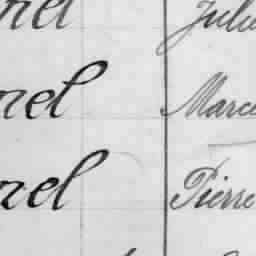 nel Julie
nel Marce
nel Pierre